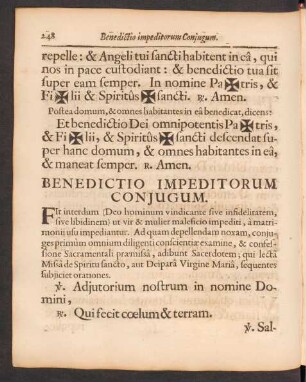 248 Benedictio impeditorum Conjugum.
repelle: & Angeli tui sancti habitent in eâ, qui
nos in pace custodiant: & benedictio tua sit
super eam semper. In nomine Pa✠tris, &
Fi✠lii & Spiritûs✠sancti. ℟. Amen.
Postea domum, & omnes habitantes in eâ benedicat, dicens:
Et benedictio Dei omnipotentis Pa✠tris,
& Fi✠lii, & Spiritûs✠sancti descendat su-
per hanc domum, & omnes habitantes in eâ,
& maneat semper. ℟. Amen.
BENEDICTIO IMPEDITORUM
CONJUGUM.
Fit interdum (Deo hominum vindicante sive infidelitatem,
sive libidinem) ut vir & mulier maleficio impediti, à matri-
monij usu impediantur. Ad quam depellendam noxam, conju-
ges primùm omnium diligenti conscientiæ examine, & confes-
sione Sacramentali præmissâ, adibunt Sacerdotem; qui lectâ
Missâ de Spiritu sancto, aut Deiparâ Virgine Mariâ, sequentes
subjiciet orationes.
℣. Adjutorium nostrum in nomine Do-
mini,
℟. Qui fecit cœlum & terram.
℣. Sal-